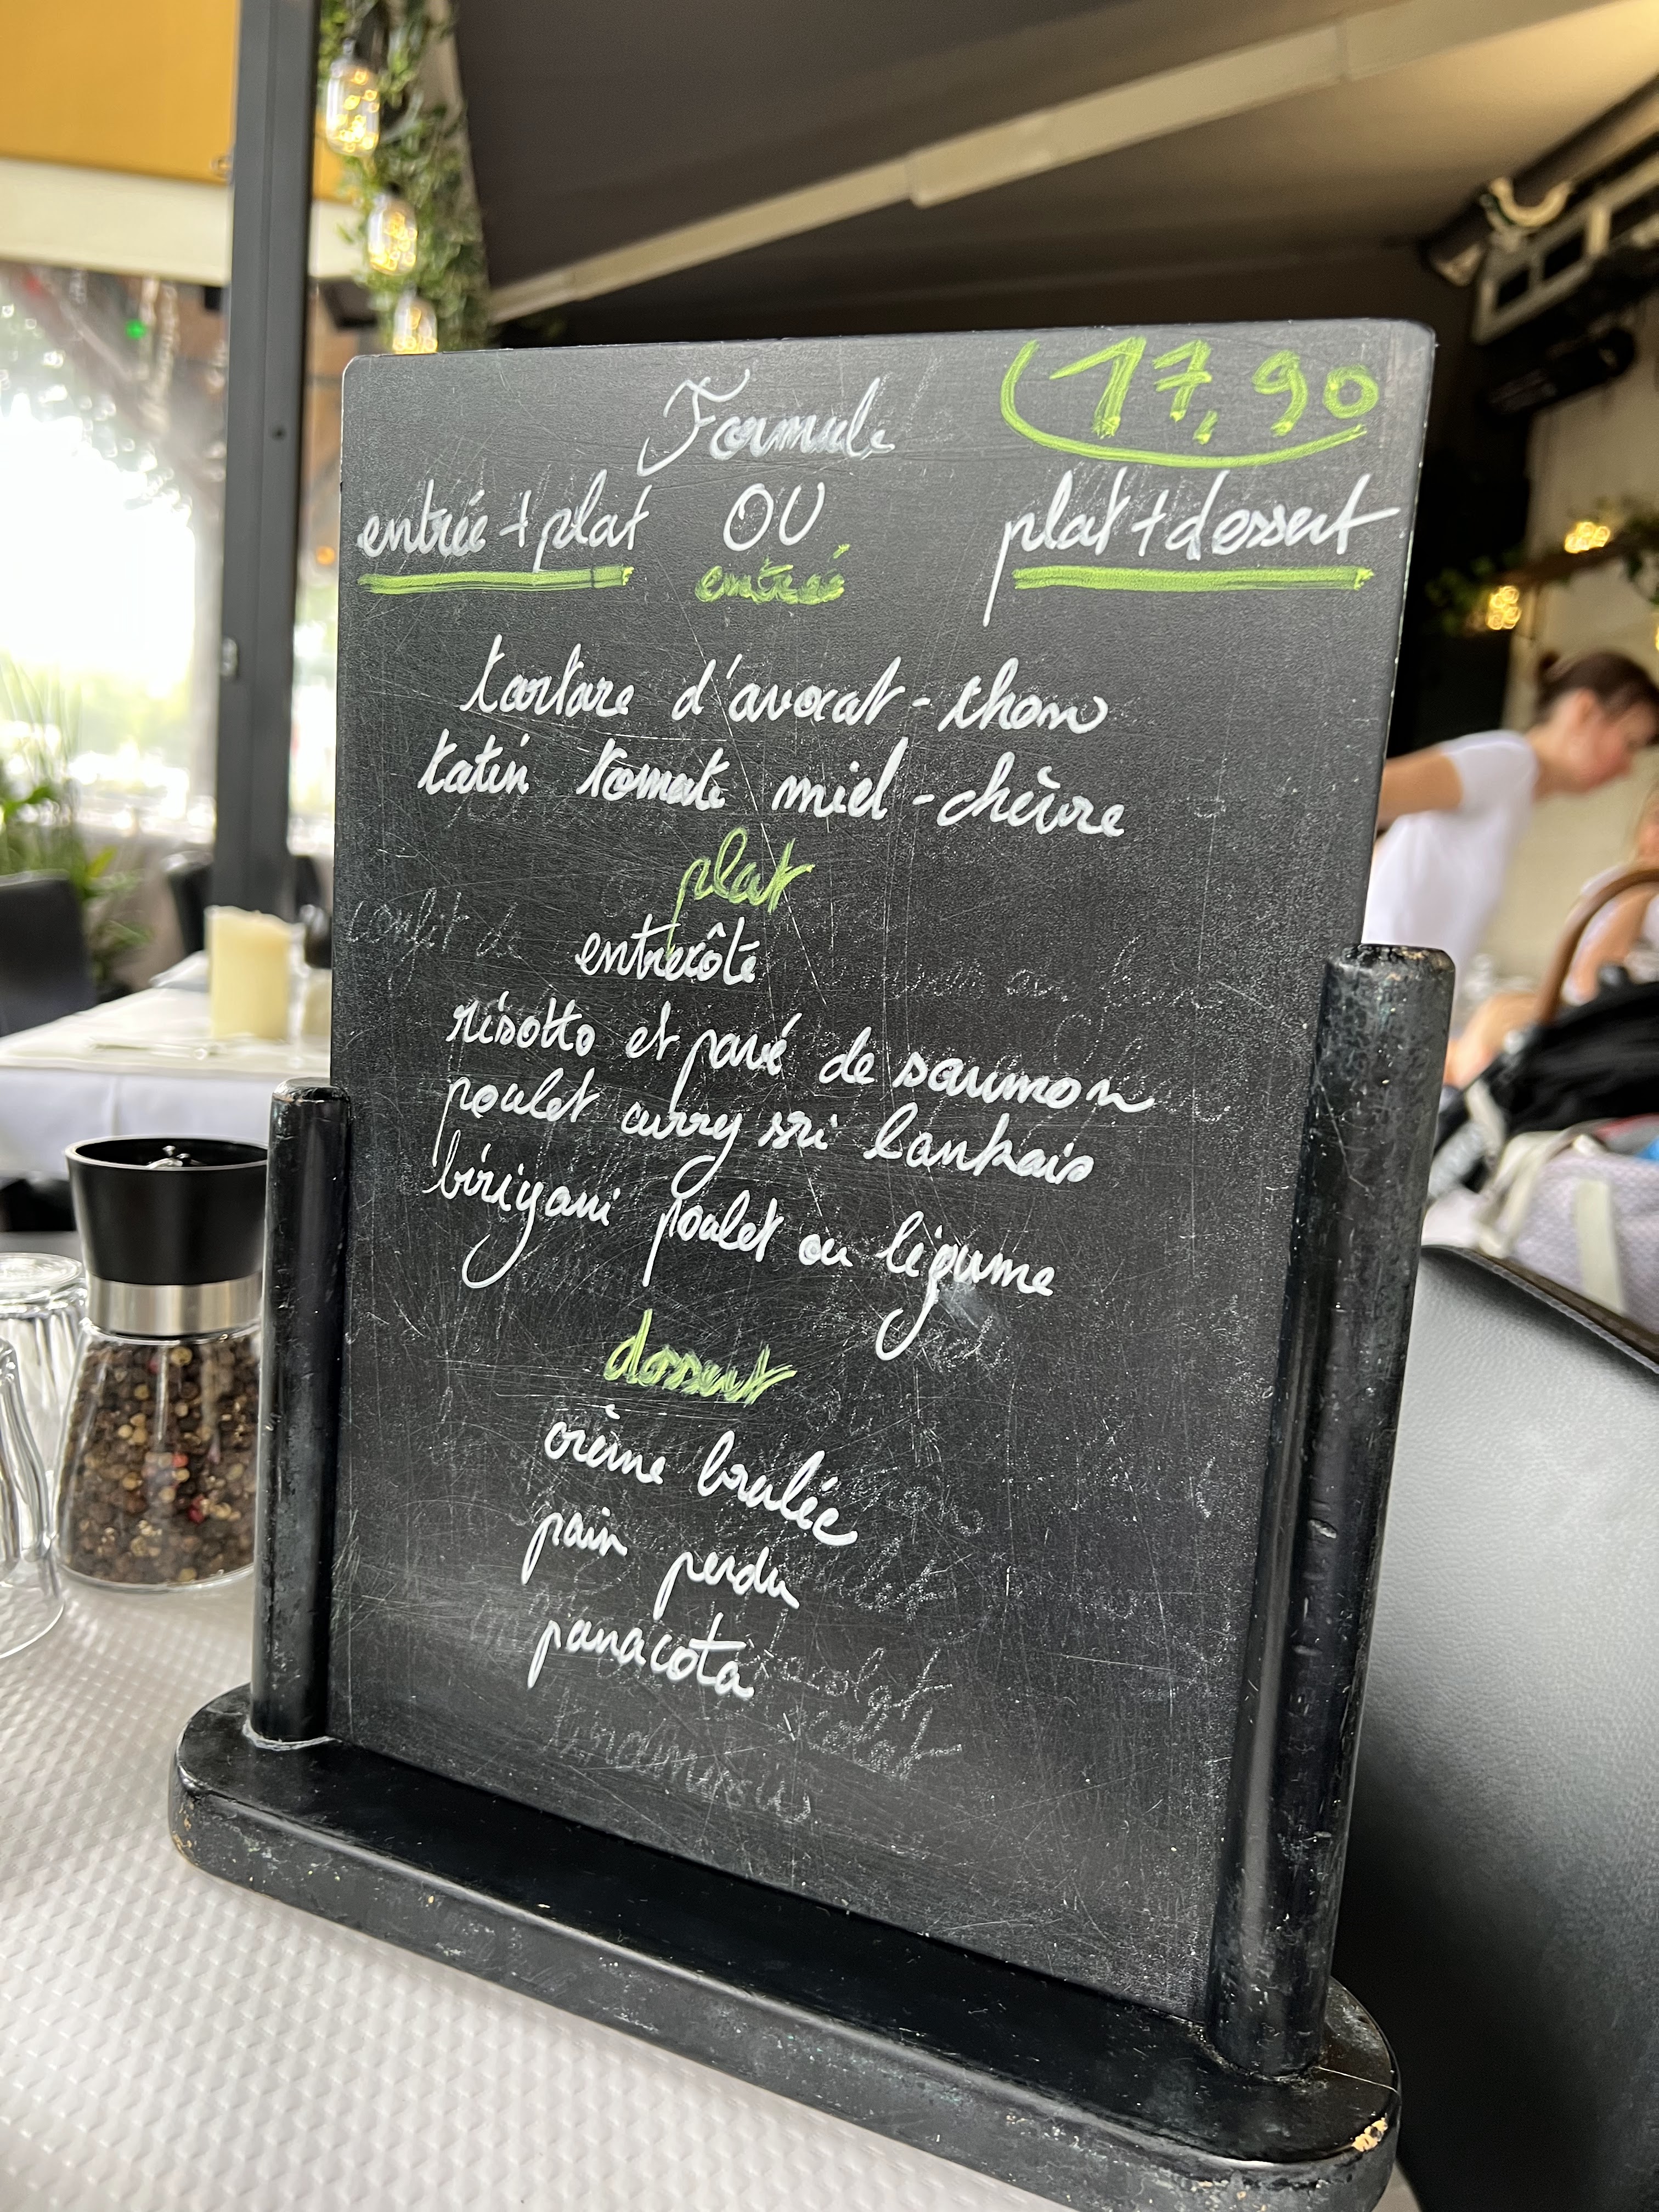 Formule 17,90
entrée + plat OU plat + dessert
entrée
tartare d'avocat - thon
tatin tomate miel - chèvre
plat
confit de
entrecôte
risotto et pavé de saumon
poulet curry sri lankais
biriyani poulet ou légume
dessert
crème brulée
pain perdu
panacota
chocolat
tiramisus